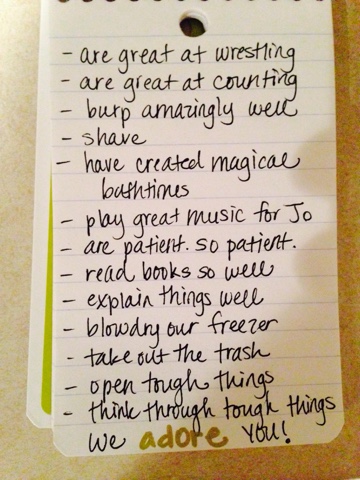 - are great at wrestling
- are great at counting
- burp amazingly well
- shave
- have created magical
bathtimes
- play great music for Jo
- are patient. so patient.
- read books so well
- explain things well
- blowdry our freezer
- take out the trash
- open tough things
- think through tough things
We adore YOU!